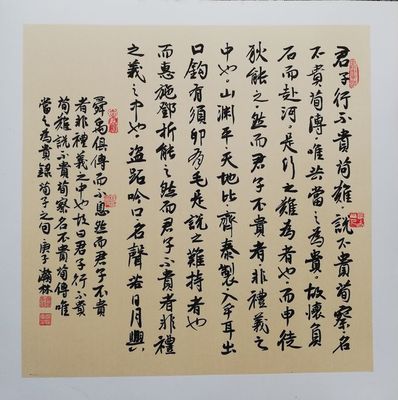 君子行不貴苟難說不貴苟察名
不貴苟傳唯其當之為貴故懷負
石而赴河是行之難為者也而申徒
狄能之然而君子不貴者非禮義之
中也山淵平天地比齊秦襲入乎耳出
口鈎有須卵有毛是說之難持者也
而惠施鄧析能之然而君子不貴者非禮
之義之中也盜跖吟口名聲若日月與
舜禹俱傳而不息然而君子不貴
者非禮義之中也故曰君子行不貴
苟難說不貴苟察名不貴苟傳唯
當之為貴錄荀子之句庚子瀚林